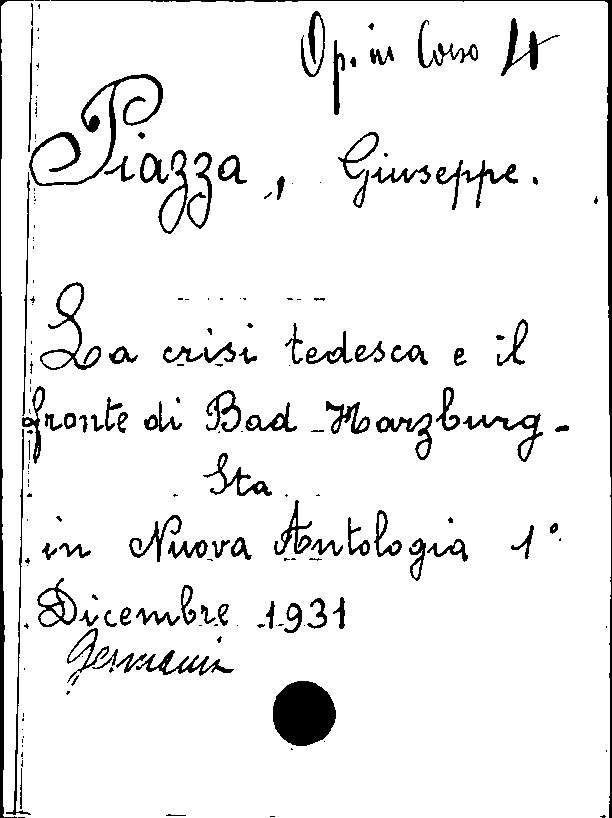 Op. in Corso 4
Piazza, Giuseppe.
La crisi tedesca e il
fronte di Bad Harzburg -
Sta
in Nuova Antologia 1°
Dicembre 1931
Germania